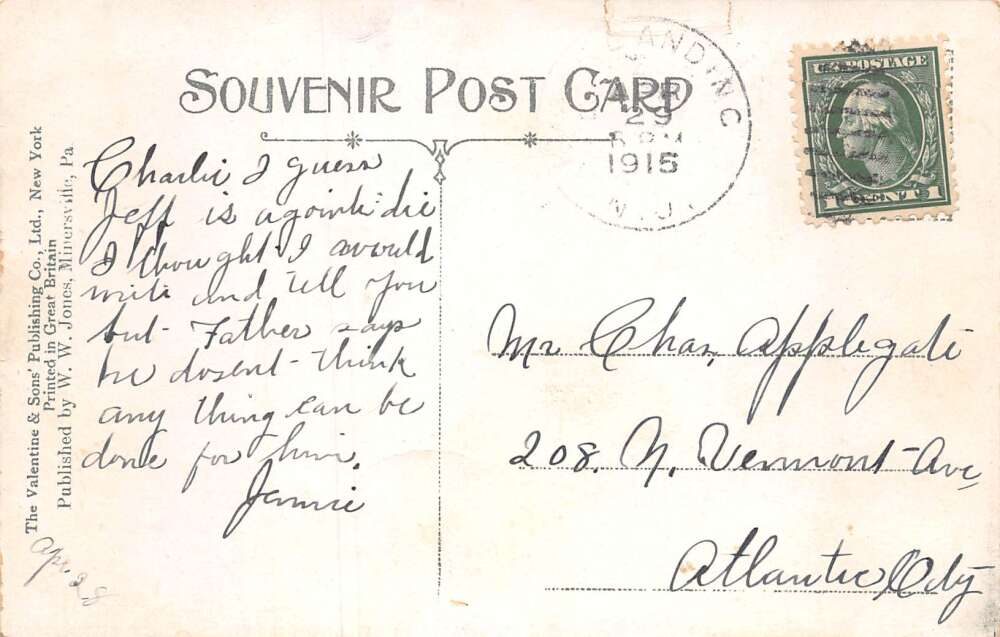 SOUVENIR POST CARD
ANDING
APR
29
PM
1915
N.J.
U.S. POSTAGE
1 CENT 1
Charlie I guess
Jeff is a goin to die
I thought I would
write and tell you
but Father says
he dosent think
any thing can be
done for him.
Jennie
Apr. 28
Mr Chas, Applegate
208. N. Vermont Ave,
Atlantic City
The Valentine & Sons' Publishing Co., Ltd., New York
Printed in Great Britain
Published by W. W. Jones, Minersville, Pa